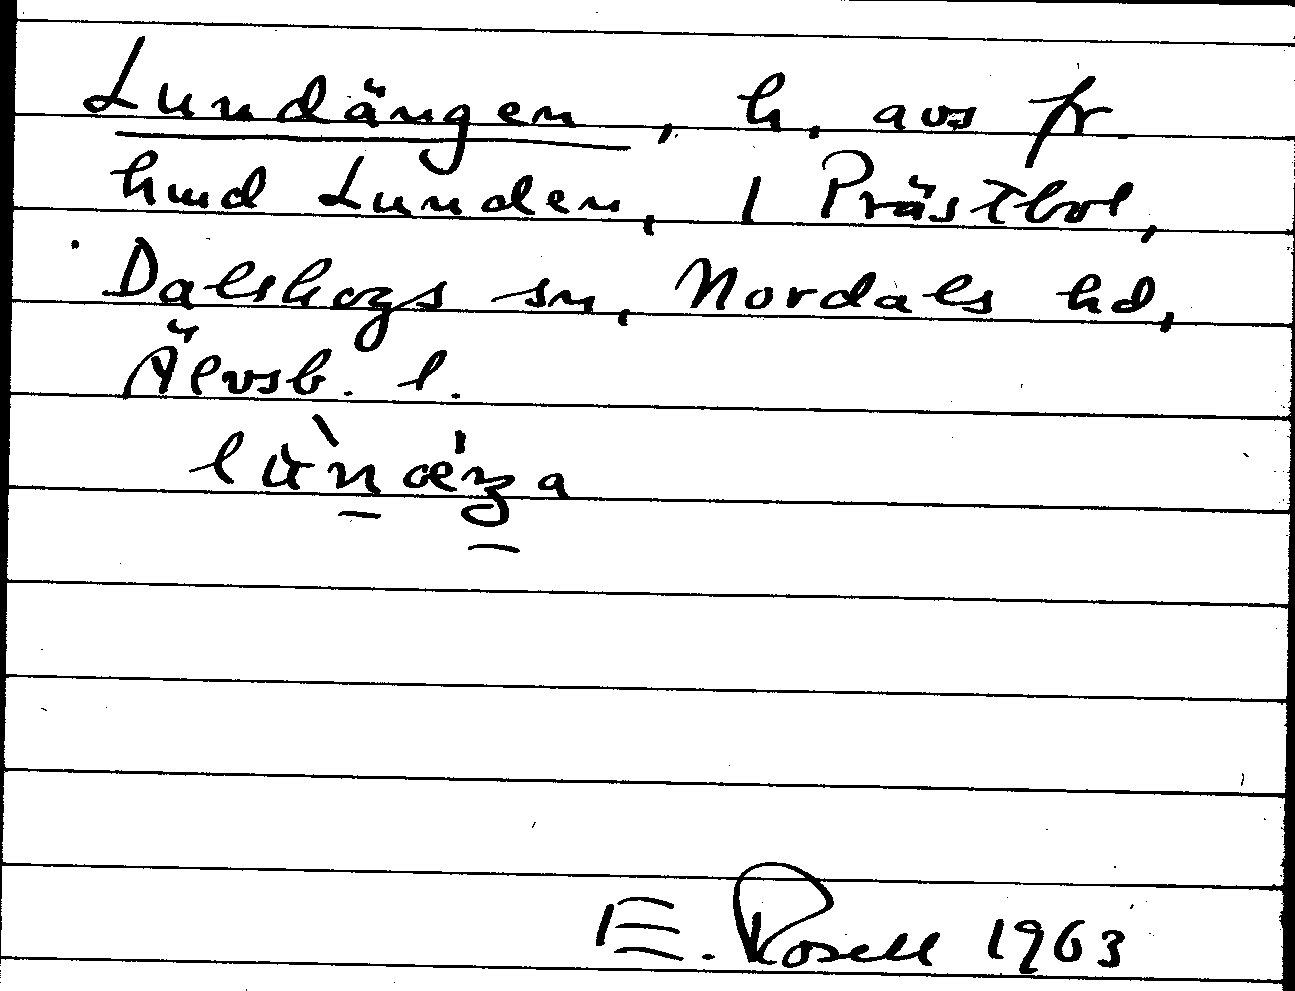 Lundängen, h. avs fr
hmd Lunden, 1 Prästbol,
Dalskogs sn, Nordals hd,
Älvsb. l.
E. Rosell 1963